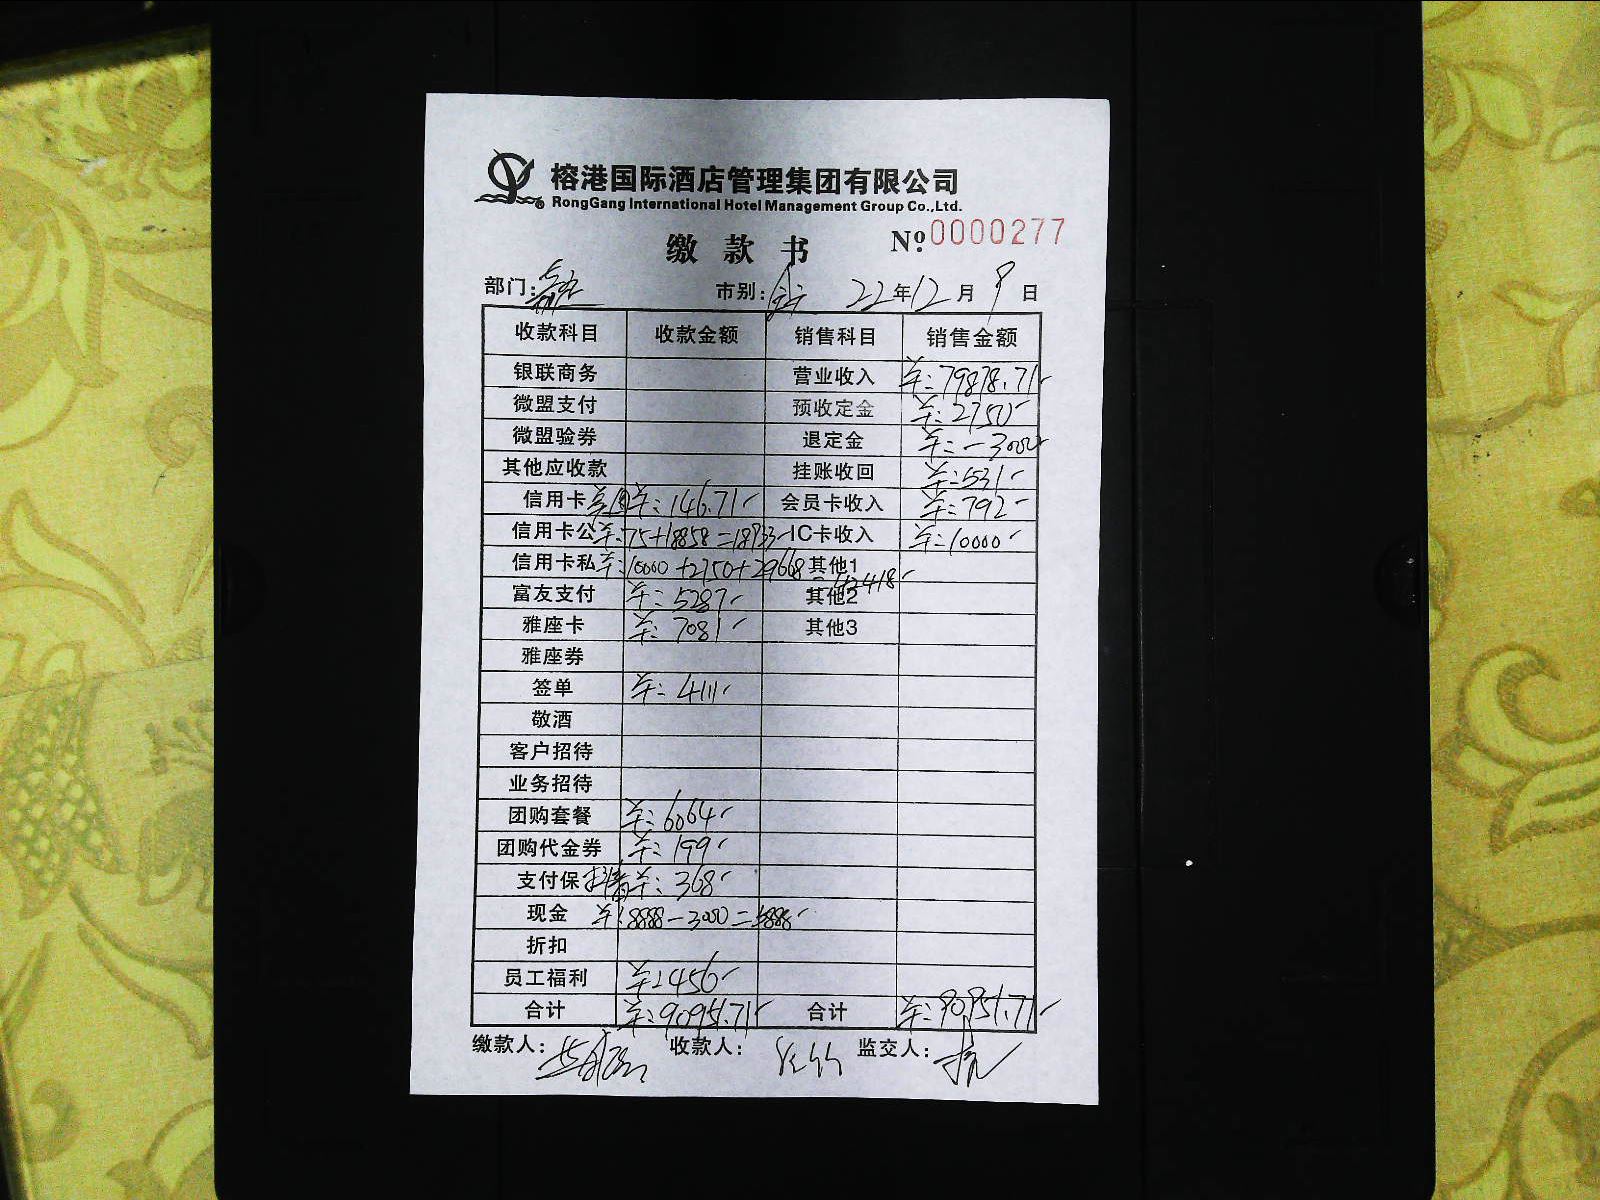 榕港国际酒店管理集团有限公司
RongGang International Hotel Management Group Co.,Ltd.
缴款书 Nº 0000277
部门: 市别: 22年12月9日
收款科目 收款金额 销售科目 销售金额
银联商务 营业收入 羊:79878.71
微盟支付 预收定金 羊:2750
微盟验券 退定金 羊:-3000
其他应收款 挂账收回 羊:531
信用卡 美团 羊:146.71 会员卡收入 羊:792
信用卡公 羊:75+18858=18933 IC卡收入 羊:10000
信用卡私 羊:10000+2750+29668=42418 其他1
富友支付 羊:5287 其他2
雅座卡 羊:7081 其他3
雅座券
签单 羊:4111
敬酒
客户招待
业务招待
团购套餐 羊:6064
团购代金券 羊:199
支付保 羊:368
现金 羊:8888-3000=5888
折扣
员工福利 羊:456
合计 羊:90951.71 合计 羊:90951.71
缴款人: 收款人: 监交人: